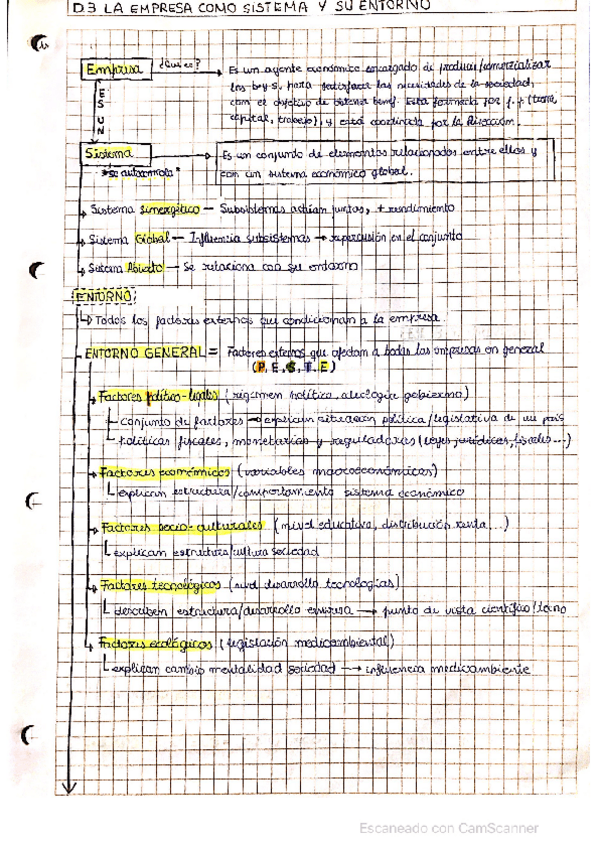 D.3 LA EMPRESA COMO SISTEMA Y SU ENTORNO
Empresa ¿Qué es? → Es un agente económico encargado de producir/comercializar
los b y s, para satisfacer las necesidades de la sociedad,
con el objetivo de obtener benef. Está formada por f.p (tierra,
capital, trabajo), y está coordinada por la dirección.
ES UN
Sistema → Es un conjunto de elementos relacionados entre ellos y
con un sistema económico global.
*se autocontrola*
Sistema Sinergético — Subsistemas actúan juntos, + rendimiento
Sistema Global — Influencia subsistemas → repercusión en el conjunto
Sistema Abierto — Se relaciona con su entorno
ENTORNO
Todos los factores externos que condicionan a la empresa
ENTORNO GENERAL = Factores externos que afectan a todas las empresas en general
(P.E.S.T.E)
Factores político-legales (régimen política, ideología gobierno)
conjunto de factores → explican situación política/legislativa de un país
políticas fiscales, monetarias y reguladoras (leyes jurídicas, fiscales...)
Factores económicos (variables macroeconómicas)
explican estructura/comportamiento sistema económico
Factores socio-culturales (nivel educativo, distribución renta...)
explican estructura/cultura sociedad
Factores tecnológicos (nivel desarrollo tecnologías)
describen estructura/desarrollo empresa → punto de vista científico/
Factores ecológicos (legislación medioambiental)
explican cambio mentalidad sociedad → influencia medioambiente
Escaneado con CamScanner